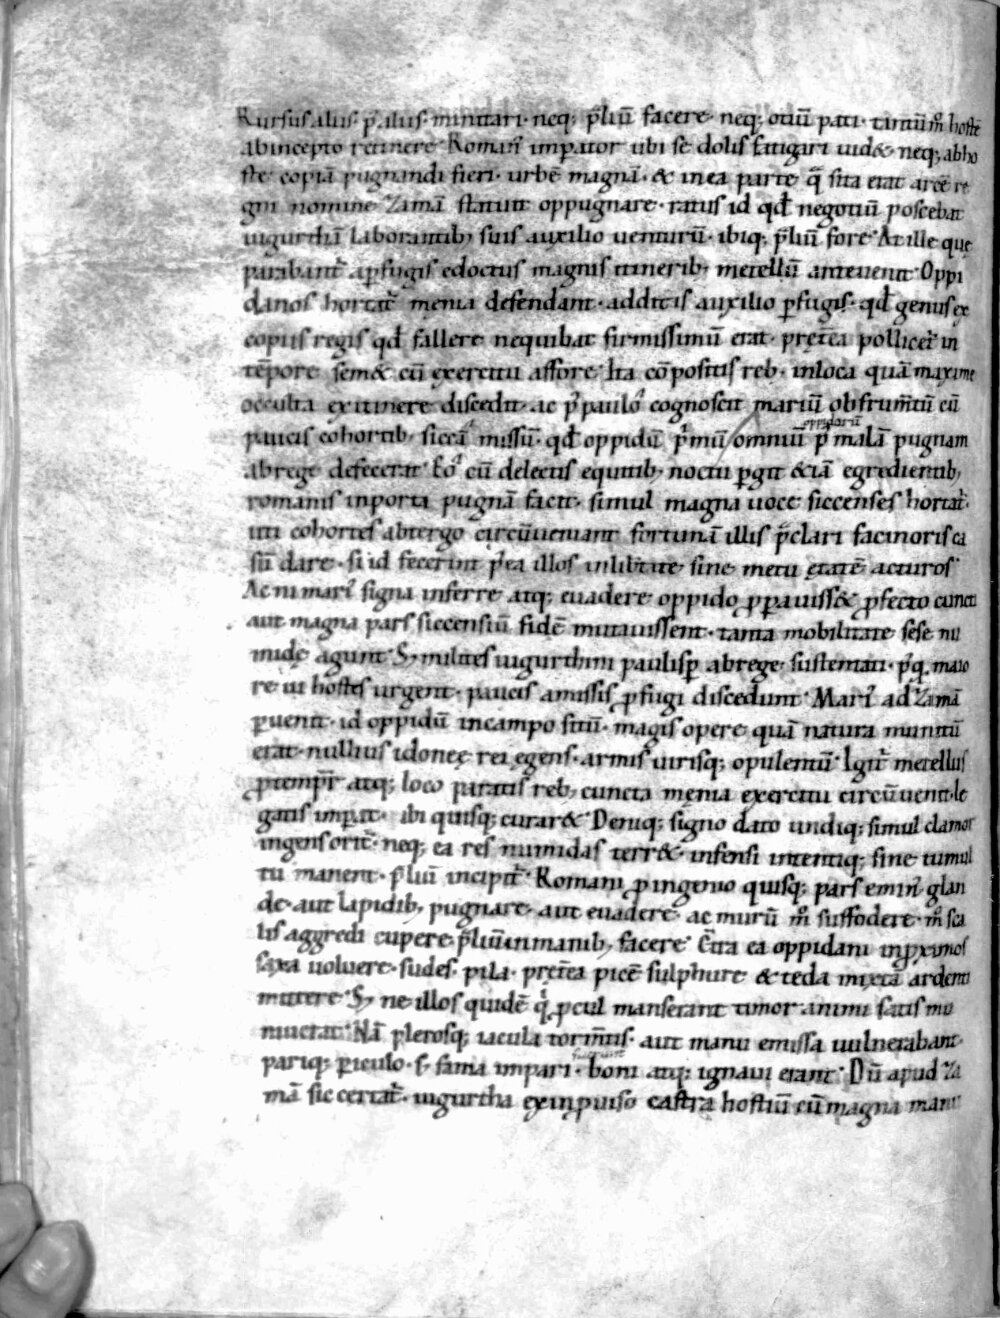 Rursus alus p̄ alus minitari· neq; p̄liū facere· neq; otiū pati· tātūm̄ hostē
abincepto retinere· Romanꝰ imperator ubi se dolis fatigari uid&· neq; abho
ste copiā pugnandi fieri· urbē magnā· & inea parte q̄ sita erat arcē re
gni nomine Zamā statuit oppugnare· ratus id qđ negotiū poscebat
iugurthā laborantib; suis auxilio uenturū· ibiq; p̄liū fore· At ille que
parabant᷑ aꝑfugis edoctus magnis itinerib; metellū anteuenit· Oppi
danos hortat᷑ menia defendant· additis auxilio ꝑfugis· qđ genus ex
copiis regis qđ fallere nequibat firmissimū erat· pręt̄ea pollicet᷑ in
tēpore sem& cū exercitu affore· Ita cōpositis reb; inloca quā maxime
occulta exitinere discedit· ac p̄ paulo cognoscit mariū obfrum̄tū cū
paucis cohortib; siccā missū· qđ oppidū p̄mū omniū p̄ malā pugnam
abrege defecerat· Eoꝰ cū delectis equitib; noctu ꝑgit &iā egredientib;
romanis inporta pugnā facit· simul magna uoce siccenses hortat᷑
uti cohortes abtergo circūueniant fortunā illis p̄clari facinoris ca
sū dare· si id fecerint p̄ea illos inlib̄tate sine metu ętatē acturos·
Ac ni mariꝰ signa inferre atq; euadere oppido ꝓꝑauiss& ꝓfecto cuncti
aut magna pars siccensiū fidē mutauissent· tanta mobilitate sese nu
midę agunt· S; milites iugurthini paulisꝑ abrege sustentati· p̄q̄ maio
re ui hostes urgent· paucis amissis ꝓfugi discedunt· Mariꝰ ad Zamā
ꝑuenit· id oppidū incampo sitū· magis opere quā natura munitū
erat· nullius idoneę rei ęgens· armis uirisq; opulentū· Igit᷑ metellus
ꝓtemp̄r atq; loco paratis reb; cuncta męnia exercitu circūuenit· le
gatis imꝑat· ibi quisq; curar&· Deniq; signo dato undiq; simul clamor
ingens orit᷑· neq; ea res numidas terr&· infensi intentiq; sine tumul
tu manent· p̄liū incipit᷑· Romani ꝓ ingenio quisq; pars eminꝰ glan
de· aut lapidib; pugnare· aut euadere· ac murū m̊ suffodere· m̊ sca
lis aggredi cupere p̄liū inmanib; facere· C̄tra ea oppidani inꝓximos
saxa uoluere· sudes· pila· pręt̄ea picē sulphure & teda mixtā ardenti
mittere· S; ne illos quidē q̇ ꝓcul manserant timor animi satis mu
niuerat· Nā plerosq; iacula torm̄tis· aut manu emissa uulnerabant·
pariq; ꝑiculo· s; fama impari· boni atq; ignaui erant· Dū apud Za
mā sic certat᷑· iugurtha eximꝓuiso castra hostiū cū magna manu